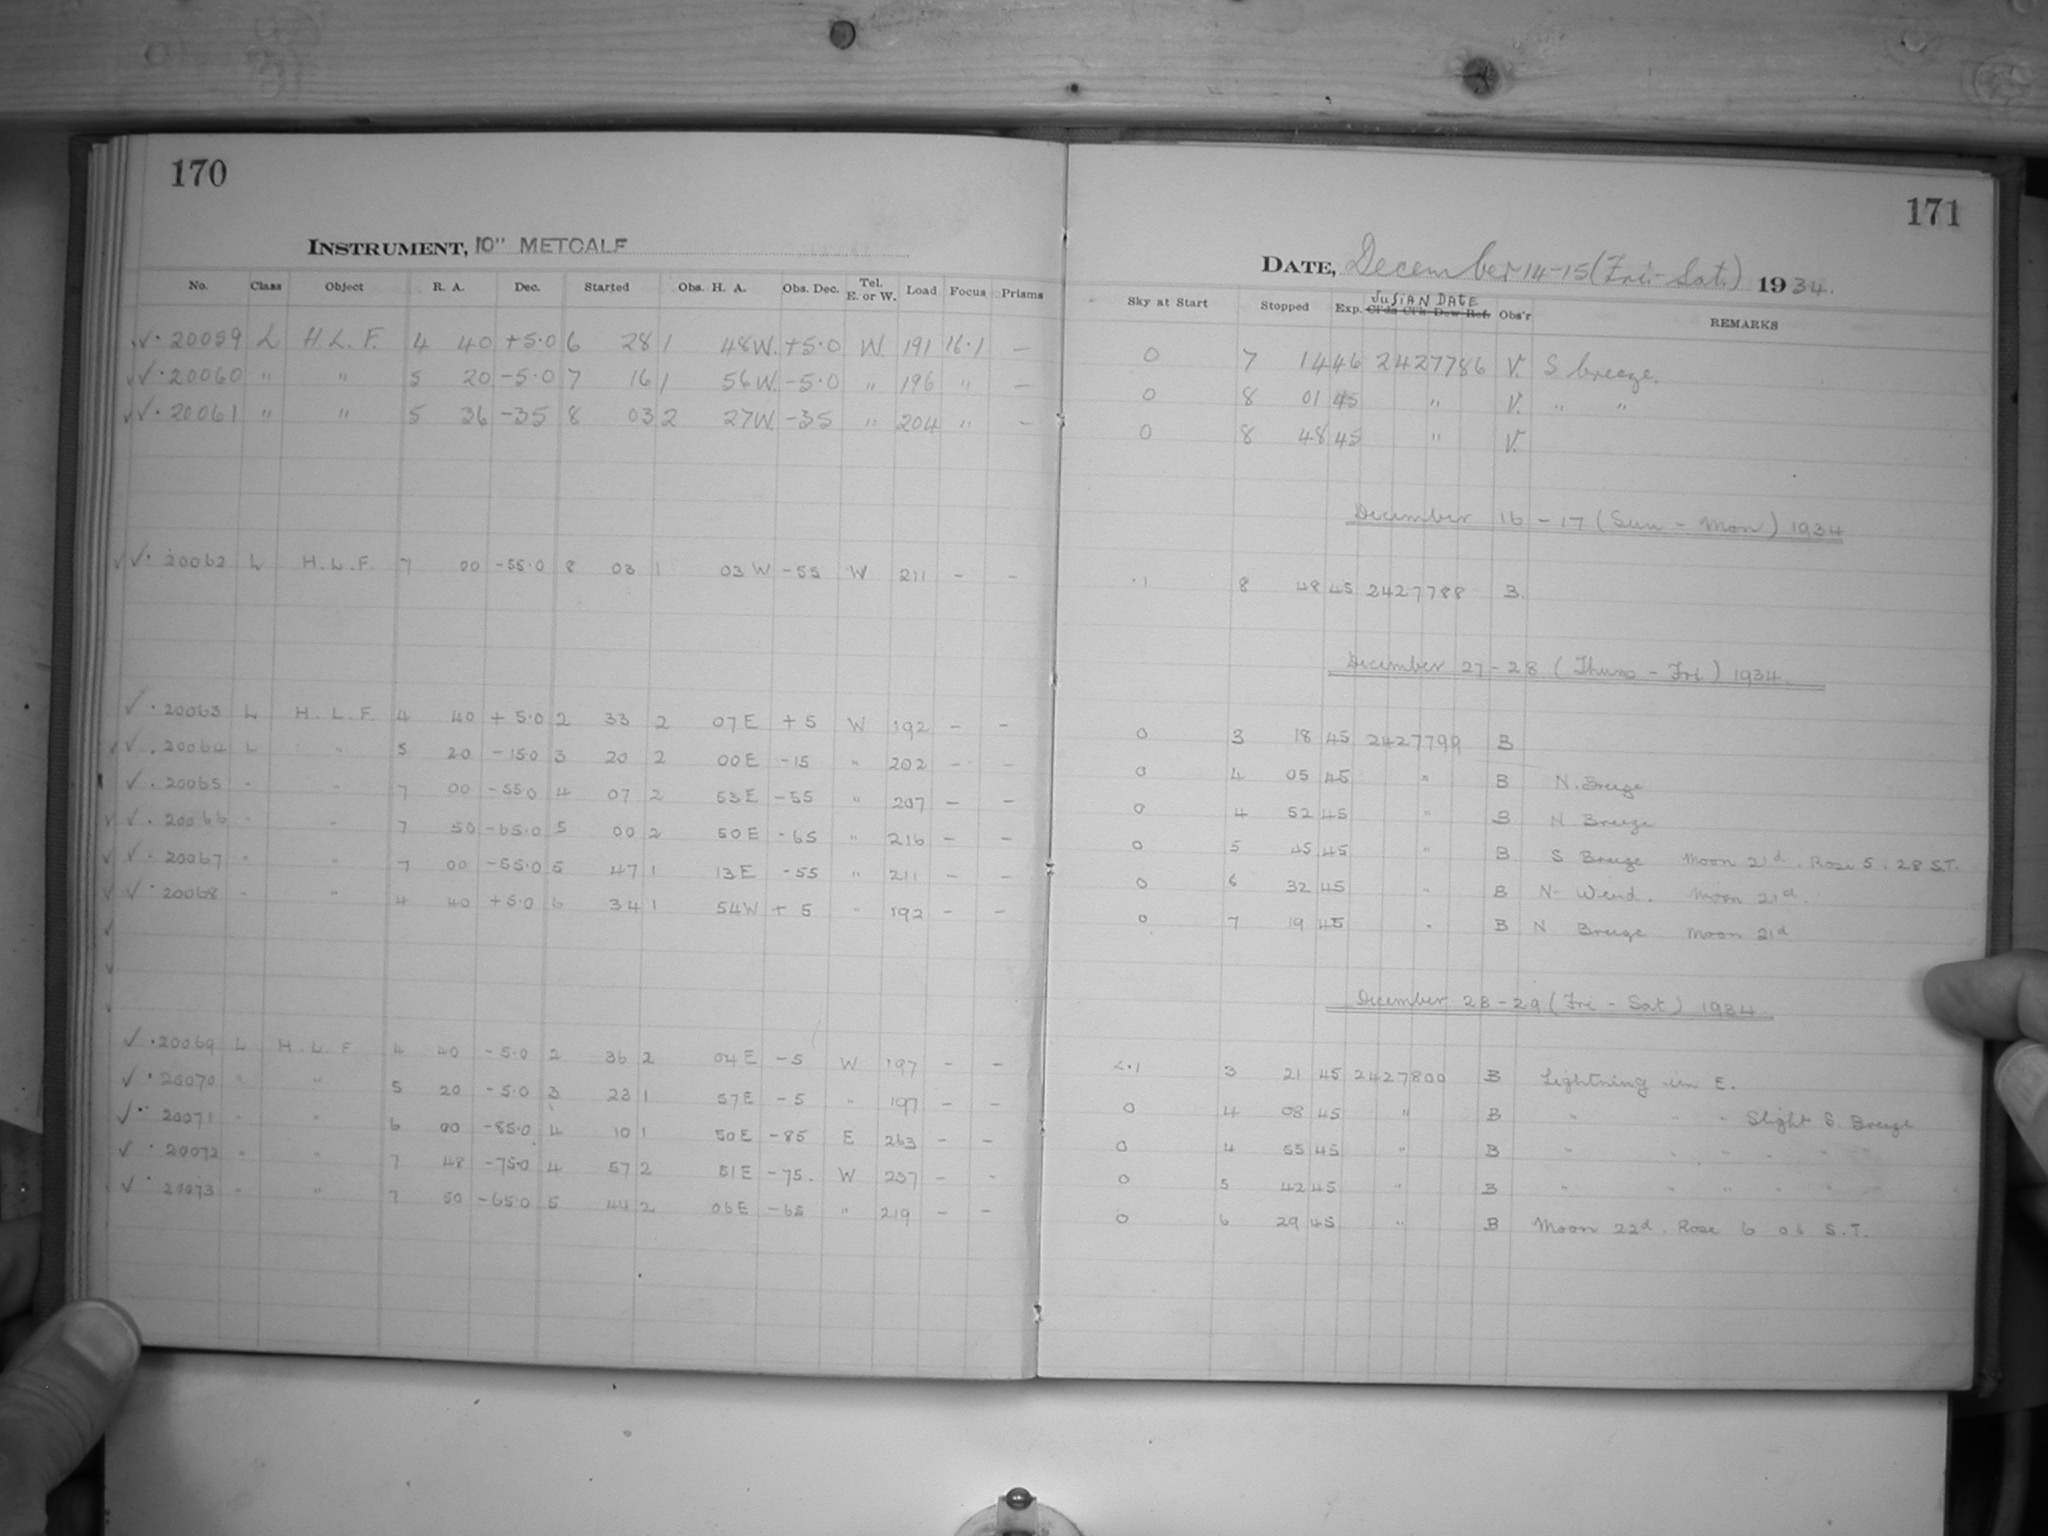 170
INSTRUMENT, 10" METCALF
No. Class Object R. A. Dec. Started Obs. H. A. Obs. Dec. Tel. E. or W. Load Focus Prisms
✓·20059 L H.L.F. 4 40 +5·0 6 28 1 48W. +5·0 W. 191 16·1 —
✓·20060 " " 5 20 -5·0 7 16 1 56W. -5·0 " 196 " —
✓·20061 " " 5 36 -35 8 03 2 27W. -35 " 204 " —
✓✓·20062 L H.L.F. 7 00 -55·0 8 03 1 03 W -55 W 211 - -
✓·20063 L H.L.F. 4 40 +5·0 2 33 2 07 E +5 W 192 - -
✓✓.20064 L " 5 20 -15·0 3 20 2 00 E -15 " 202 - -
✓·20065 " " 7 00 -55·0 4 07 2 53 E -55 " 207 - -
✓✓.20066 " " 7 50 -65·0 5 00 2 50 E -65 " 216 - -
✓✓·20067 " " 7 00 -55·0 5 47 1 13 E -55 " 211 - -
✓✓·20068 " " 4 40 +5·0 6 34 1 54W +5 " 192 - -
✓
✓
✓·20069 L H.L.F. 4 40 -5·0 2 36 2 04 E -5 W 197 - -
✓·20070 " " 5 20 -5·0 3 23 1 57 E -5 " 197 - -
✓·20071 " " 6 00 -85·0 4 10 1 50 E -85 E 263 - -
✓·20072 " " 7 48 -75·0 4 57 2 51 E -75. W 237 - -
✓·20073 " " 7 50 -65·0 5 44 2 06 E -65 " 219 - -
171
DATE, December 14-15 (Fri.-Sat.) 1934.
JULIAN DATE
Sky at Start Stopped Exp. Cl'ds Cl'k Dew Ref. Obs'r REMARKS
0 7 14 46 2427786 V. S breeze.
0 8 01 45 " V. " "
0 8 48 45 " V.
December 16-17 (Sun - Mon) 1934
·1 8 48 45 2427788 B.
December 27-28 (Thurs - Fri) 1934
0 3 18 45 2427799 B
0 4 05 45 " B N. Breeze
0 4 52 45 " B N. Breeze
0 5 45 45 " B S Breeze Moon 21d. Rose 5.28 S.T.
0 6 32 45 " B N- Wind. Moon 21d.
0 7 19 45 " B N Breeze Moon 21d
December 28-29 (Fri - Sat) 1934
<·1 3 21 45 2427800 B Lightning in E.
0 4 08 45 " B " " " Slight S. Breeze
0 4 55 45 " B " " " " " "
0 5 42 45 " B " " " " " "
0 6 29 45 " B Moon 22d. Rose 6 06 S.T.